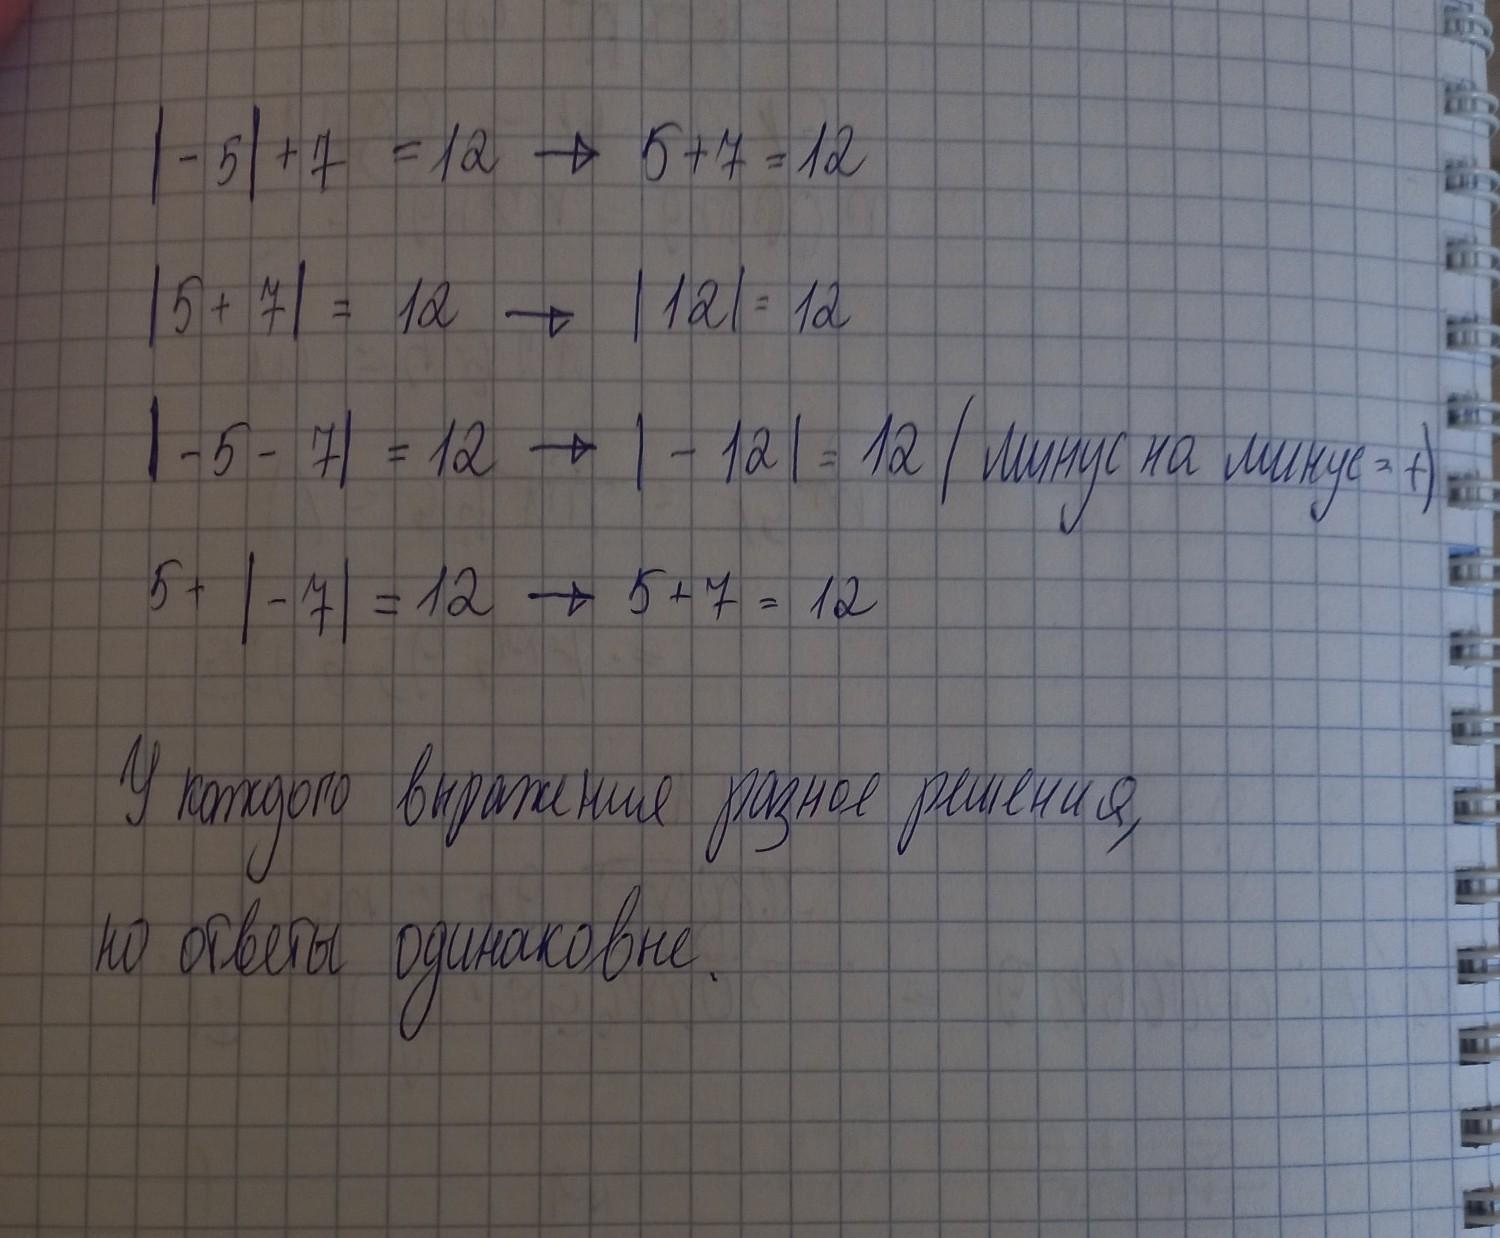 |-5|+7 = 12 → 5+7 = 12
|5+7| = 12 → |12| = 12
|-5-7| = 12 → |-12| = 12 (минус на минус = +)
5+|-7| = 12 → 5+7 = 12
У каждого выражения разное решения,
но ответы одинаковые.